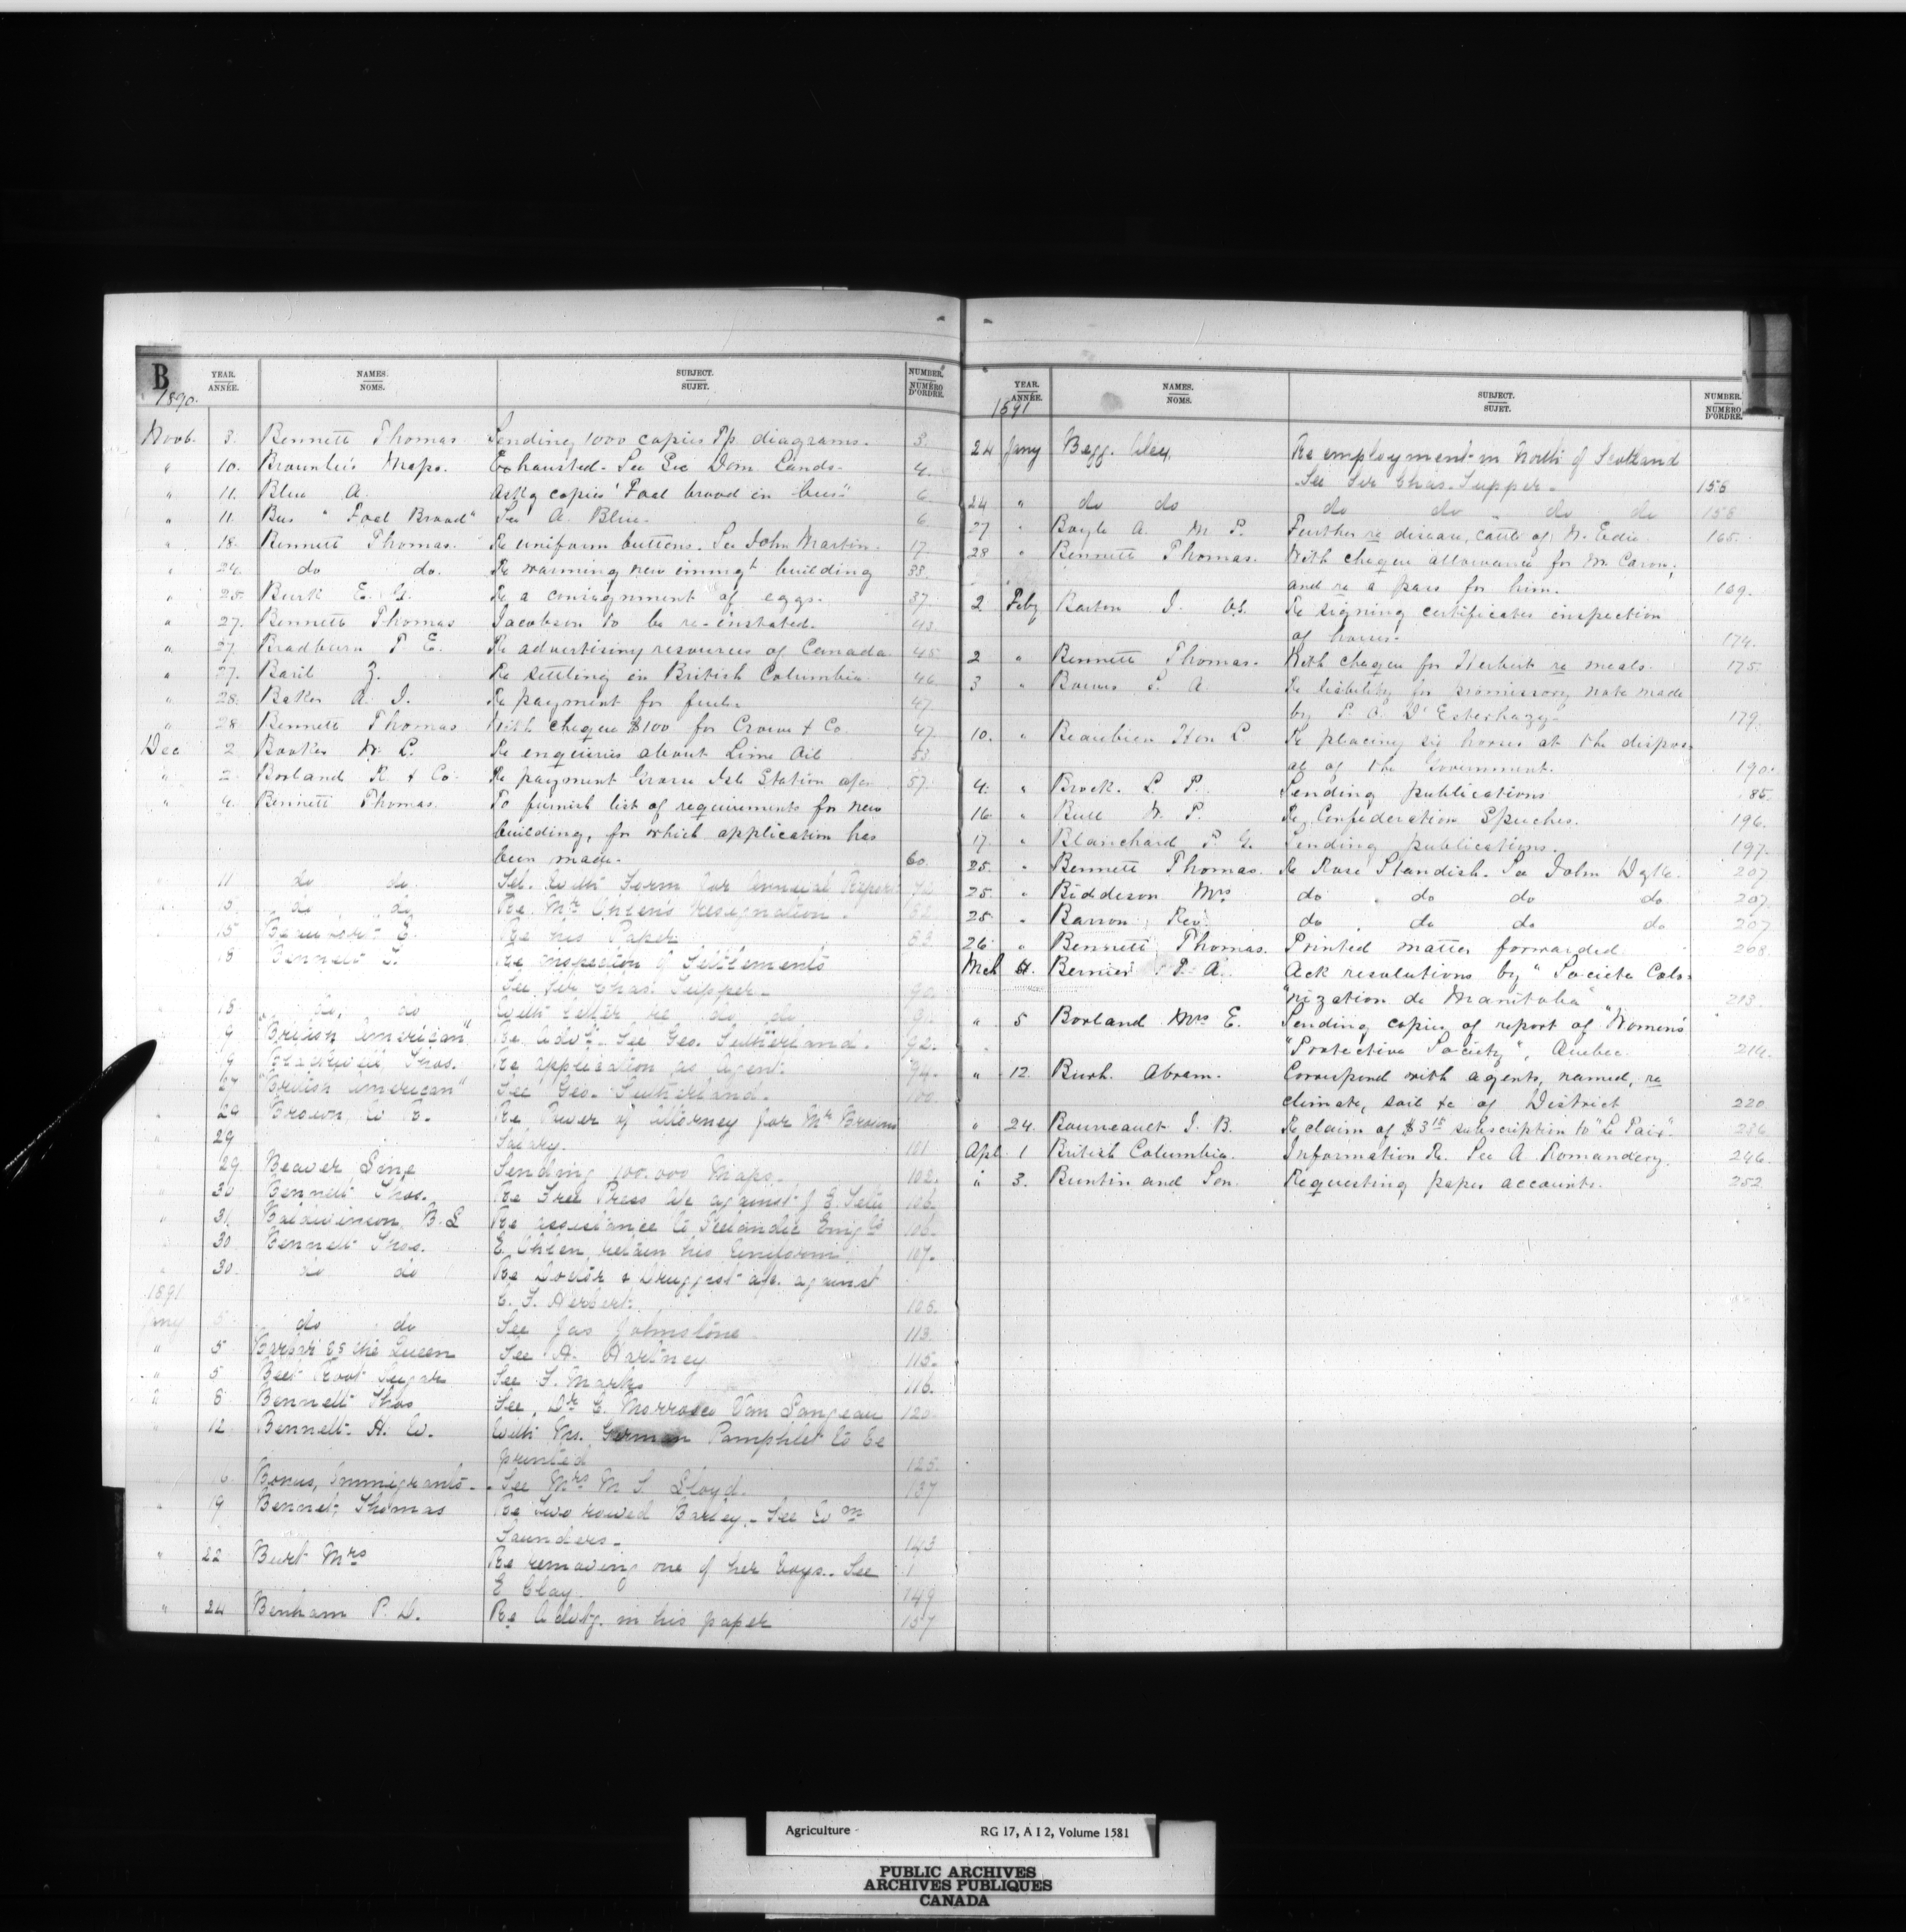 B
1890.
YEAR.
ANNÉE.
NAMES.
NOMS.
SUBJECT.
SUJET.
NUMBER.
NUMÉRO
D'ORDRE.
Novb. 3. Bennett Thomas Sending 1000 copies Pp. diagrams. 3.
" 10. Brownlee's Maps. Exhausted. See Sec Dom. Lands. 4.
" 11. Blue A. Asks copies "Foul brood in bees" 6.
" 11. Bees "Foul Brood" See A. Blue. 6
" 18. Bennett Thomas. Re uniform buttons. See John Martin. 17.
" 24. do do. Re warming new immigt building 33.
" 25. Burk E. G. Re a consignment of eggs. 37.
" 27. Bennett Thomas Jacobson to be re-instated. 43.
" 27. Bradburn P. E. Re advertising resources of Canada 45.
" 27. Basil Z. Re settling in British Columbia. 46
" 28. Baker A. J. Re payment for 47
" 28. Bennett Thomas With cheque $100 for & Co. 47.
Dec 2 Booker W. L. Re enquiries about Lime Oil 53
" 2. Borland R. & Co. Re payment Grosse Isle Station a/c. 57.
" 4. Bennett Thomas. To furnish list of requirements for new
building, for which application has
been made. 60.
" 11 do do Tel. With Form for Annual Report
do do Re Mr Ohlen's resignation.
15 E. Re his Paper
18 Bennett T. Re inspection of Settlements
See Sir Chas. Tupper. 90.
" 18. do, do With letter re do do
" 9 "British American" Re Advt. See Geo. Sutherland. 92.
9 Thos. Re application as Agent. 94.
" 27 "British American" See Geo. Sutherland. 100.
" 29 Brown, W. B. Re Power of Attorney for Mr Browns
" 29 Salary. 101
" 29. Beaver Line Sending 100.000 Maps. 102.
" 30 Bennett Thos. Re Free Press a/c against J. E. 103.
" 31. Baldwinson, B. L Re assistance to Icelandic Emigts 106.
" 30. Bennett Thos. E. Ohlen retain his Uniform. 107.
" 30. do do Re Doctor & Druggist a/c. against
1891. C. F. Herbert. 108.
Jany 5. do do See Jas Johnstone. 113.
" 5 Barbar SS the Queen See A. Hartney 115.
" 5 Beet Root Sugar See F. Marks 116.
" 8 Bennett Thos See, Dr C. Morrosco Van Langeau 120.
" 12 Bennett. H. W. With Ms. German Pamphlet to be
printed 125.
16 Bonus, Immigrants. See Mrs M S Lloyd. 137
" 19 Bennet, Thomas Re Two rowed Barley. See Wm
Saunders. 143
" 22 Burt Mrs Re removing one of her boys. See
E Clay. 149
" 24 Benham P. D. Re Advtg. in his paper 157
YEAR.
ANNÉE.
1891
NAMES.
NOMS.
SUBJECT.
SUJET.
NUMBER.
NUMÉRO
D'ORDRE.
24 Jany Begg. Alex. Re employment in North of Scotland
See Sir Chas. Tupper. 158
24 " do do do do do do 158
27 " Boyle A. M P. Further re disease, cattle of W. Eadie. 165.
28 " Bennett Thomas. With cheque allowance for M. Caron;
and re a pass for him. 169.
2 Feby Barton J. V.S. Re signing certificates inspection
of horses. 174.
2 " Bennett Thomas. With cheque for Herbert re meals. 175.
3 " Bowes S. A. Re liability for promissory note made
by P. O. D'Esterhazy. 179.
10. " Beaubien Hon L Re placing six horses at the dispos-
al of the Government. 190.
4. " Brock. L. P. Sending publications 185.
16. " Bull W. P. Re Confederation Speeches. 196.
17. " Blanchard P. G. Sending publications. 197.
25. " Bennett Thomas. Re Rose Standish. See John Dyke. 207
25. " Biddeson Mrs do do do do. 207.
25 " Barron Rev. do do do do 207
26 " Bennett Thomas. Printed matter forwarded 208.
Mch 4. Bernier T. A. Ack resolutions by "Societe Colo-
"nization de Manitoba" 213.
" 5 Borland Mrs E. Sending copies of report of "Women's
"Protective Society", Quebec. 214.
" 12. Burk. Abram. Correspond with agents, named, re
climate, soil &c of District 220
" 24. Bourreault J. B. Re claim of $3 subscription to "Le Pais". 236
Apl 1 British Columbia. Information Re. See A Romandery. 246.
" 3. Buntin and Son. Requesting paper accounts. 252
Agriculture RG 17, A I 2, Volume 1581
PUBLIC ARCHIVES
ARCHIVES PUBLIQUES
CANADA